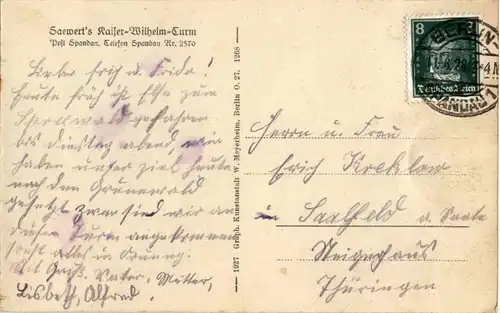 Saewert's Kaiser-Wilhelm-Turm
Post Spandau, Telefon Spandau Nr. 2570
Lieber Erich u. Frida!
Heute früh ist Else zum
Spreewald gefahren
bis Dienstag abend, wir
haben unser Ziel heute
nach dem Grunewald
gesetzt. Zwar sind wir am
diesen Turm angekommen
sonst alles in Ordnung.
Mit Gruß. Vater, Mutter,
Lisbeth, Alfred.
1927 Graph. Kunstanstalt W. Meyerheim, Berlin O. 27. 1268
8
Deutsches Reich
BERLIN
SPANDAU 1
Herrn u. Frau
Erich
in Saalfeld a. Saale
Thüringen